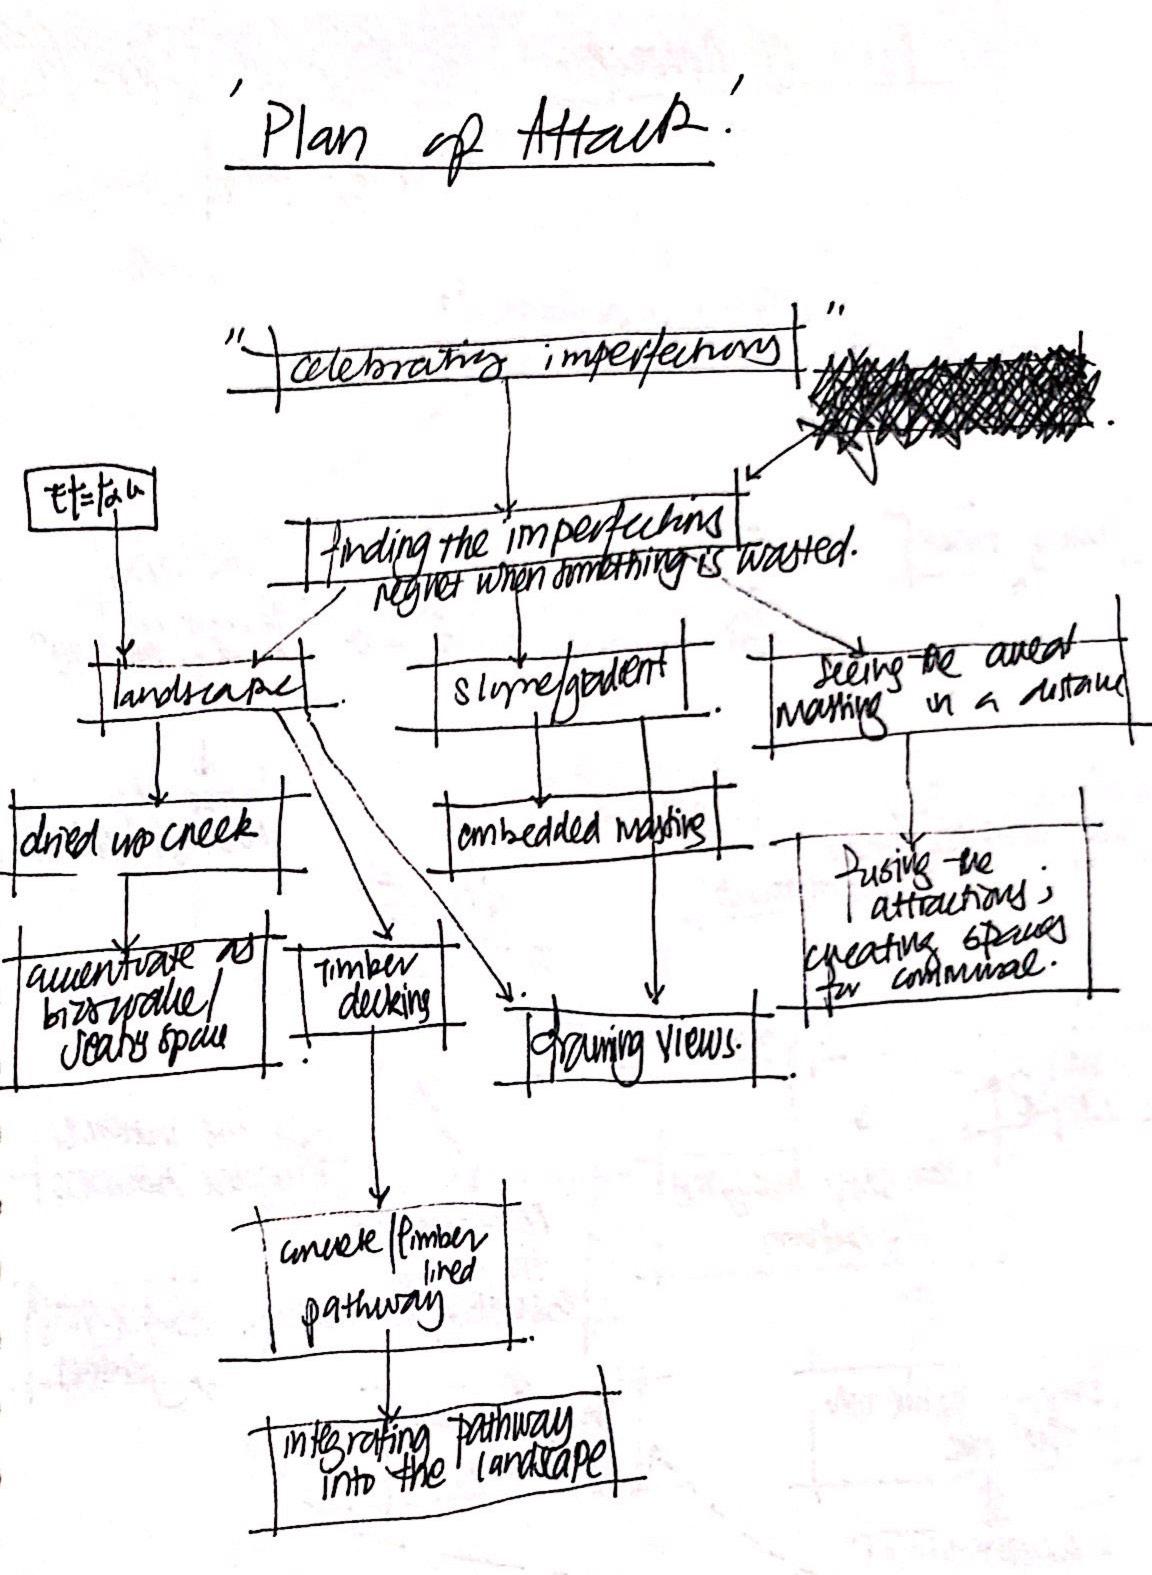 'Plan of Attack.'
"celebrating imperfections"
finding the imperfections
regret when something is wasted.
landscape
slope/gradient
seeing the
massing in a distance
dried up creek
embedded massing
fusing the
attractions;
creating spaces
for communal.
accentuate as
bioswale/
space
Timber
decking
framing views.
concrete/timber
lined
pathway
integrating pathway
into the landscape